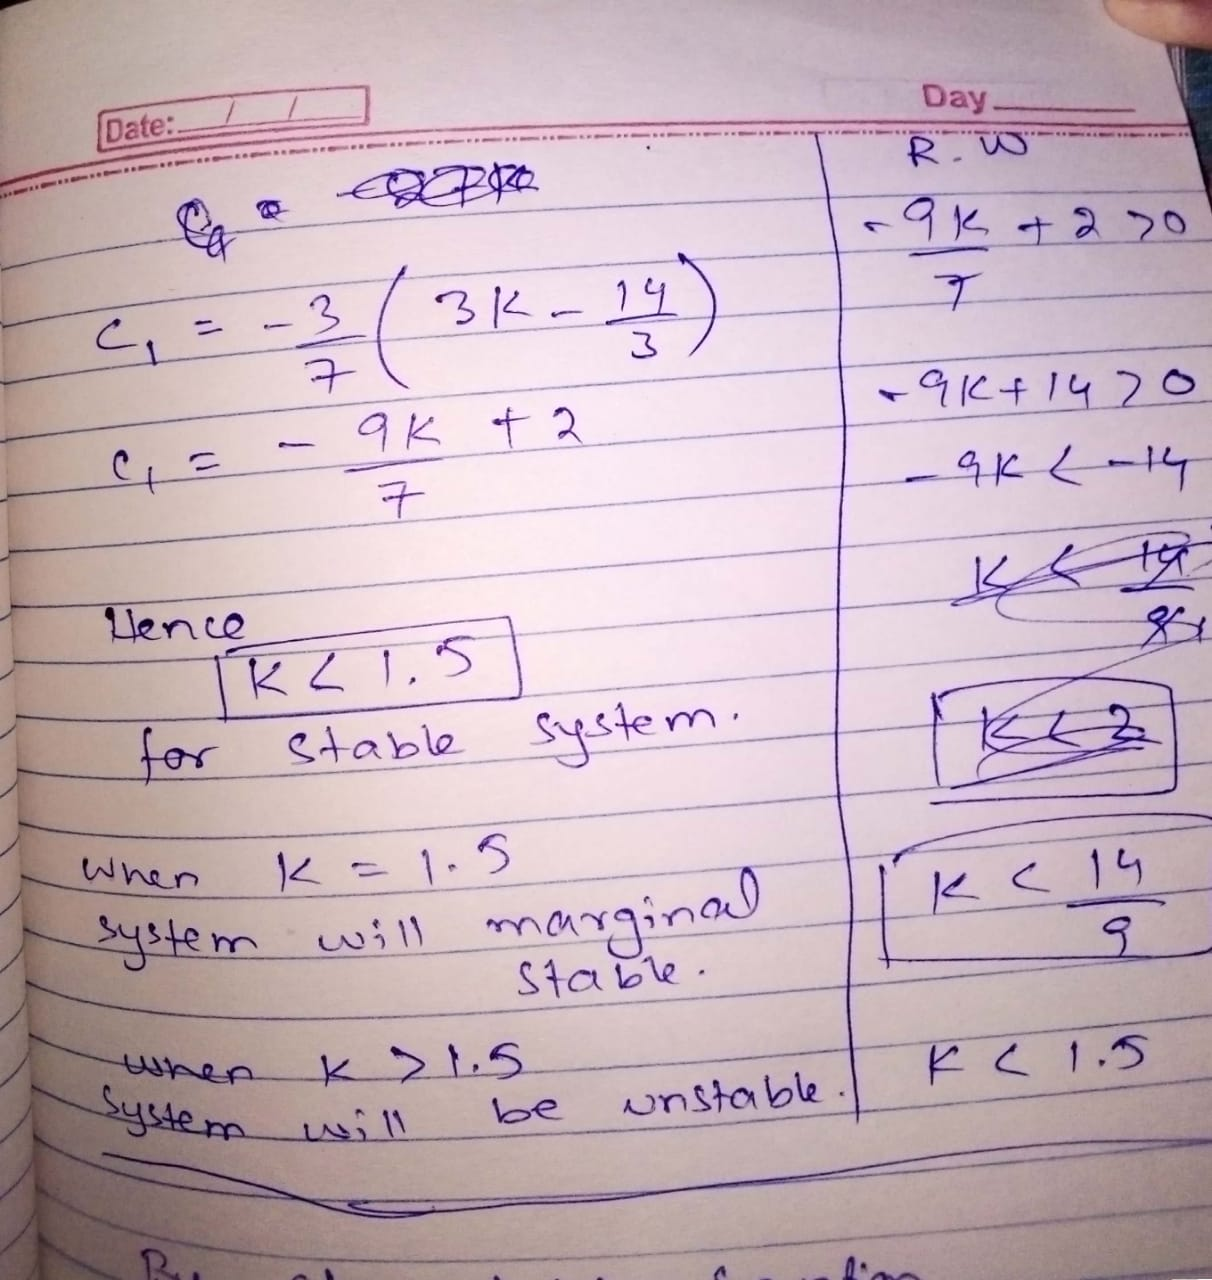 Date: / /
Day
C₁ = -3/7 ( 3K - 14/3 )
C₁ = - 9K/7 + 2
Hence
K < 1.5
for stable system.
when K = 1.5
system will marginal
stable.
when K > 1.5
system will be unstable.
R.W
- 9K/7 + 2 > 0
- 9K + 14 > 0
- 9K < -14
K < 14
K < 2
K < 14/9
K < 1.5